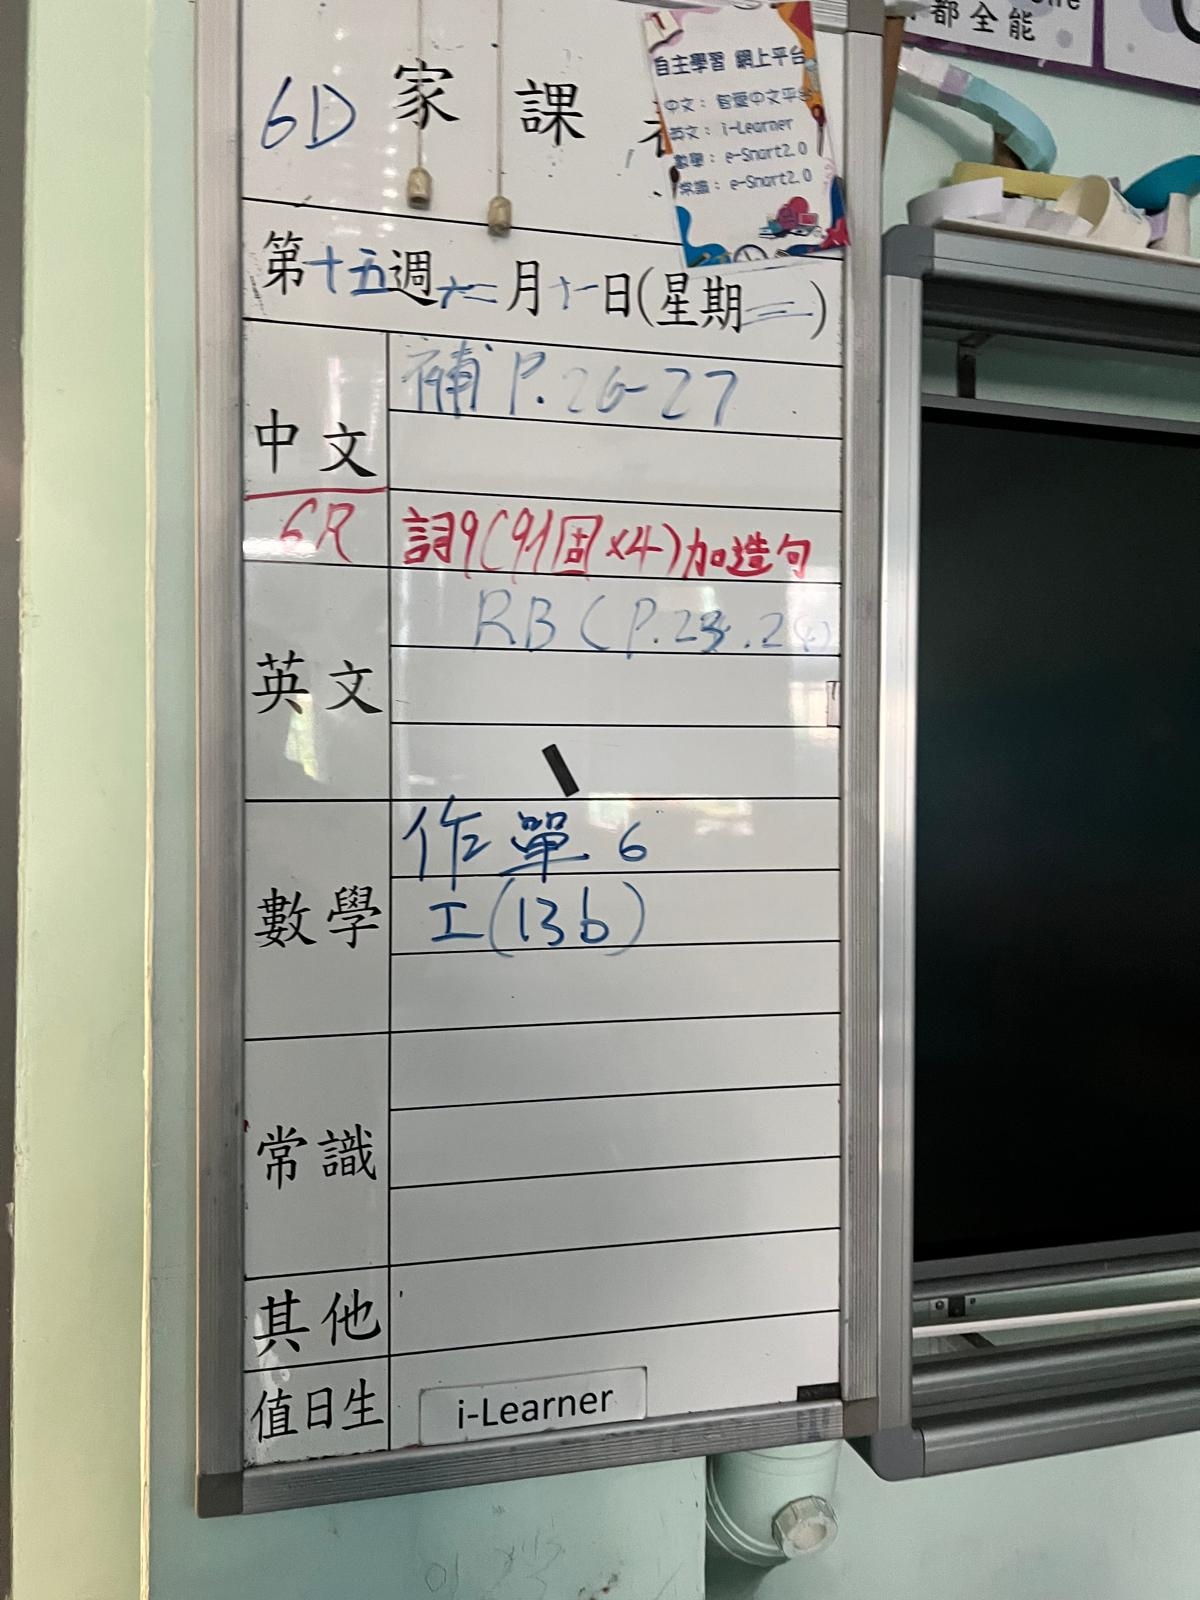 6D 家課
自主學習 網上平台
中文: 智愛中文平台
英文: i-Learner
數學: e-Smart2.0
常識: e-Smart2.0
都全能
第十五週十二月十一日(星期三)
中文
補 P.26-27
6R
詞9(9個×4)加造句
英文
RB (P.23.2
數學
作單 6
工(13b)
常識
其他
值日生
i-Learner